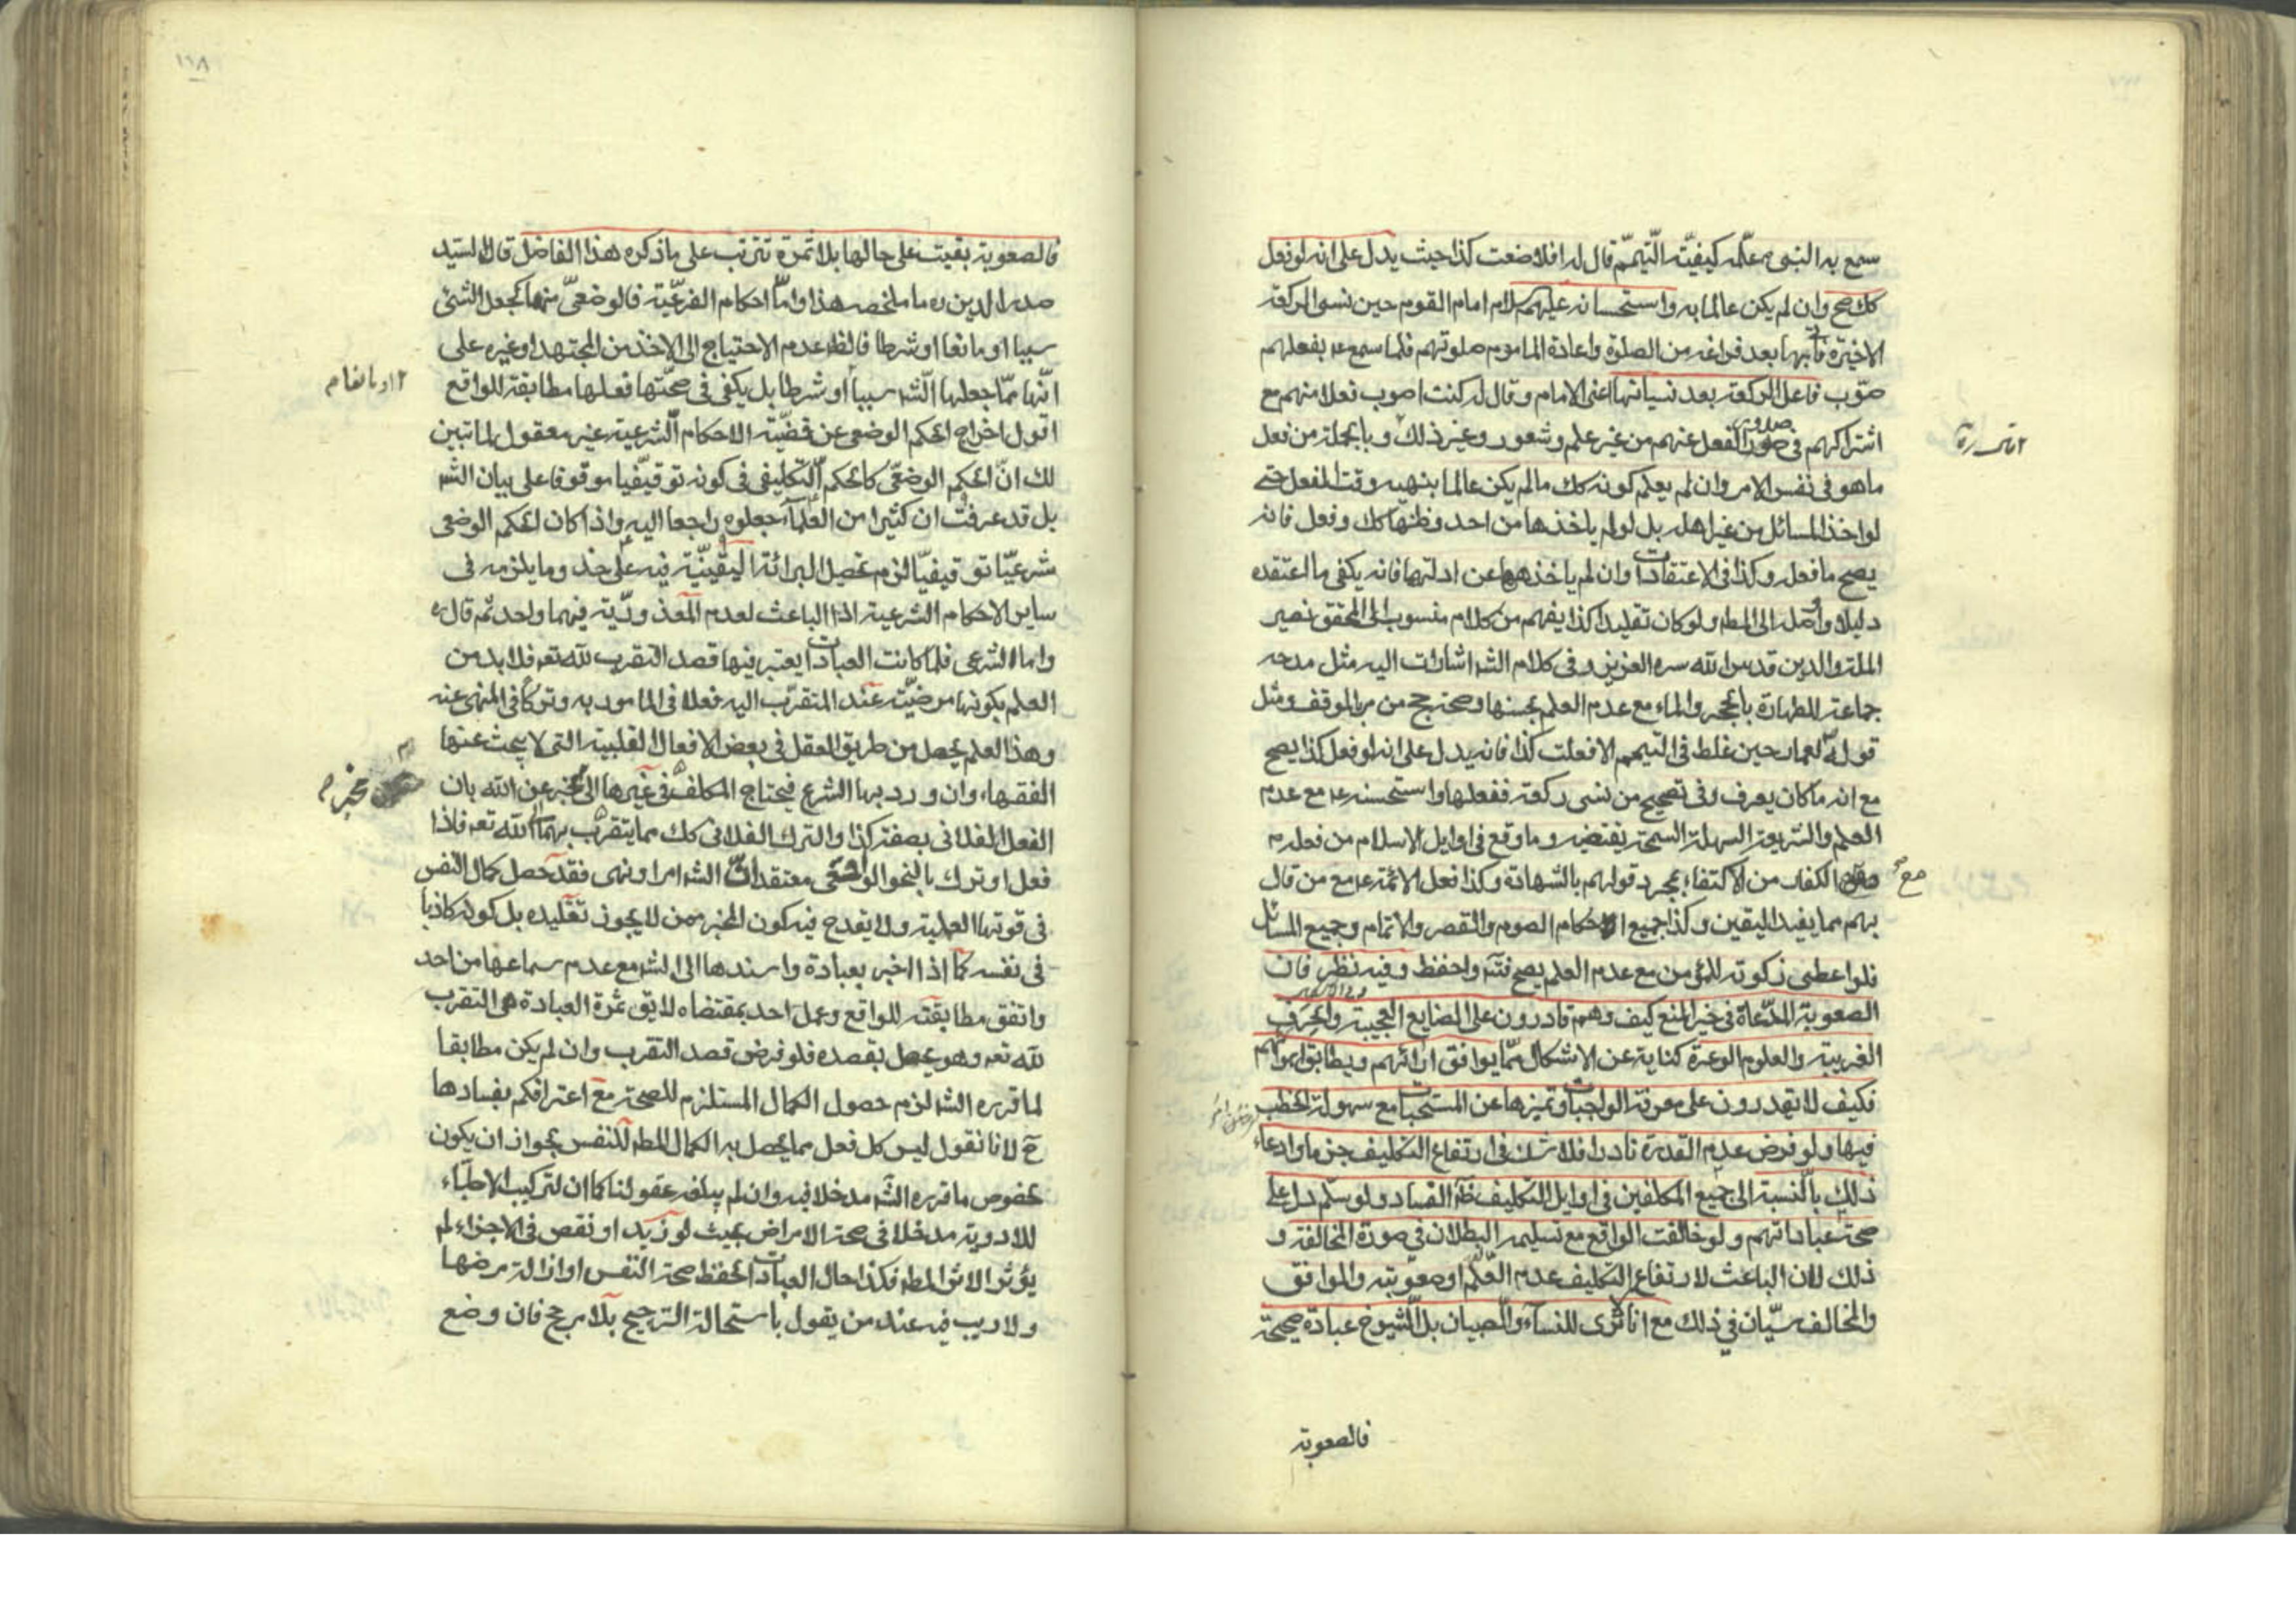 سمع به النبى ص علمه كيفيّة التّيمّم قال له افلا صنعت كذا حيث يدل على انه لو فعل
كك صح وان لم يكن عالما به واستحسانه عليهم سلام امام القوم حين نسى الركعة
الاخيرة فاتى بها بعد فراغه من الصلوة واعادة الماموم صلوتهم فلما سمع عه بفعلهم
صوّب فاعل الركعة بعد نسيانها اعنى الامام وقال له كنت اصوب فعلا منهم مع
اشتراكهم فى صدور الفعل عنهم من غير علم وشعور وغير ذلك وبالجملة من فعل
ما هو فى نفس الامر وان لم يعلم كونه كك ما لم يكن عالما بنهيه وقت الفعل حتى
لو اخذ المسائل من غير اهله بل لو لم ياخذها من احد وظنها كك وفعل فانه
يصح ما فعله وكذا فى الاعتقادات وان لم ياخذها عن ادلتها فانه يكفى ما اعتقده
دليلا واوصله الى المط ولو كان تقليدا كذا يفهم من كلام منسوب الى المحقق نصير
الملة والدين قدس الله سره العزيز وفى كلام الشه اشارات اليه مثل مدحه
جماعة للطهارة بالحجر والماء مع عدم العلم بحسنها وصحة حج من مر بالموقف ومثل
قوله لعمار حين غلط فى التيمم الا فعلت كذا فانه يدل على انه لو فعل كذا يصح
مع انه ما كان يعرف وفى تصحيح من نسى ركعة ففعلها واستحسنه عه مع عدم
العلم والشريعة السهلة السمحة يقتضيه وما وقع فى اوايل الاسلام من فعله ص
مع الكفار من الاكتفاء بمجرد قولهم بالشهادة وكذا فعل الائمة عه مع من قال
بهم مما يفيد اليقين وكذا جميع احكام الصوم والقصر والاتمام وجميع المسائل
فلو اعطى زكوته للمؤمن مع عدم العلم يصح فتنه واحفظ وفيه نظر فان
الصعوبة المدّعاة فى حيز المنع كيف وهم قادرون على الصنايع العجيبة والحرف
الغريبة والعلوم الوعرة كناية عن الاشكال ممّا يوافق ارائهم ويطابق اهوائهم
فكيف لا يقدرون على معرفة الواجبات وتميزها عن المستحبات مع سهولة الخطب
فيها ولو فرض عدم القدرة نادرا فلا شك فى ارتفاع التكليف جزما وادعاء
ذلك بالنسبة الى جميع المكلفين فى اوايل التكليف ظه الفساد ولو سلّم دل على
صحة عباداتهم ولو خالفت الواقع مع تسليمه البطلان فى صورة المخالفة و
ذلك لان الباعث لارتفاع التكليف عدم العلم او صعوبته والموافق
والمخالف سيّان فى ذلك مع انا لا نرى للنساء والصبيان بل الشيوخ عبادة صحيحة
فالصعوبة
فالصعوبة بقيت على حالها بلا ثمرة تترتب على ما ذكره هذا الفاضل قال السيد
صدر الدين ره ما ملخصه هذا وامّا احكام الفرعيّة فالوضعىّ منها كجعل الشئ
سببا او مانعا او شرطا فالظ عدم الاحتياج الى الاخذ من المجتهد او غيره على
انّها ممّا جعلها الشه سببا او شرطا بل يكفى فى صحّتها فعلها مطابقة للواقع
اقول اخراج الحكم الوضعى عن قضيّة الاحكام الشرعية غير معقول لما تبين
لك انّ الحكم الوضعىّ كالحكم التّكليفى فى كونه توقيفيا موقوفا على بيان الشه
بل قد عرفت ان كثيرا من العلماء جعلوه راجعا اليه واذا كان الحكم الوضعى
شرعيّا توقيفيّا لزم تحصيل البرائة اليقينيّة فيه على حذو ما يلزم فى
ساير الاحكام الشرعية اذ الباعث لعدم المعذوريّة فيهما واحد ثم قال ره
واما الشرعى فلما كانت العبادات يعتبر فيها قصد التقرب لله تعه فلا بد من
العلم بكونها مرضيّة عند المتقرّب اليه فعلا فى المامور به وتركا فى المنهى عنه
وهذا العلم يحصل من طريق العقل فى بعض الافعال القلبية التى لا يبحث عنها
الفقهاء وان ورد بها الشرع فيحتاج المكلف فى غيرها الى مخبر عن الله بان
الفعل الفلانى بصفة كذا والترك الفلانى كك مما يتقرب بهما الى الله تعه فاذا
فعل او ترك بالنحو الواقعى معتقدا ان الشه امر او نهى فقد حصل كمال النفس
فى قوتها العملية ولا يقدح فيه كون المخبر ممن لا يجوز تقليده بل كونه كاذبا
فى نفسه كما اذا اخبر بعبادة واسندها الى الشه مع عدم سماعها من احد
واتفق مطابقته للواقع وعمل احد بمقتضاه لا يق ثمرة العبادة هى التقرب
لله تعه وهو يحصل بقصده فلو فرض قصد التقرب وان لم يكن مطابقا
لما قرره الشه لزم حصول الكمال المستلزم للصحة مع اعترافكم بفسادها
ح لانا نقول ليس كل فعل مما يحصل به الكمال المط للنفس بجواز ان يكون
لخصوص ما قرره الشه مدخلا فيه وان لم يبلغه عقولنا كما ان لتركيب الاطباء
للادوية مدخلا فى صحة الامراض بحيث لو زيد او نقص فى الاجزاء لم
يؤثر الاثر المط فكذا حال العبادات لحفظ صحة النفس او ازالة مرضها
ولا ريب فيه عند من يقول باستحالة الترجيح بلا مرجح فان وضع
او مانعا م
مخبر م
مع صح
١١٨